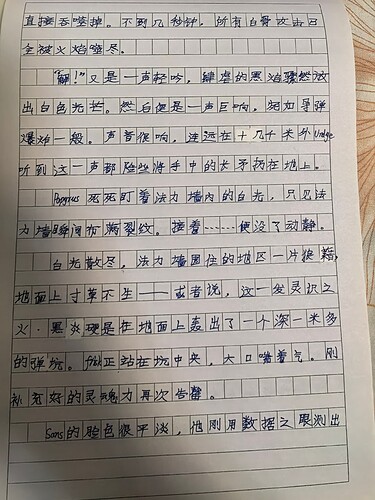 直接吞噬掉。不到几秒钟，所有白骨攻击已
全被火焰噬尽。
"解！"又是一声轻吟，肆虐的黑焰骤然放
出白色光芒。然后便是一声巨响，宛如导弹
爆炸一般。声音很响，连远在十几千米外Undyne
听到这一声都险些将手中的长矛扔在地上。
Papyrus死死盯着法力墙内的白光，只见法
力墙瞬间布满裂纹。接着……便没了动静。
白光散尽，法力墙围住的地区一片狼藉，
地面上寸草不生——或者说，这一发灵识之
火·黑炎硬是在地面上轰出了一个深一米多
的弹坑。正站在坑中央，大口喘着气。刚
补充好的灵魂力再次告罄。
Sans的脸色很平淡，他刚用数据之眼测出